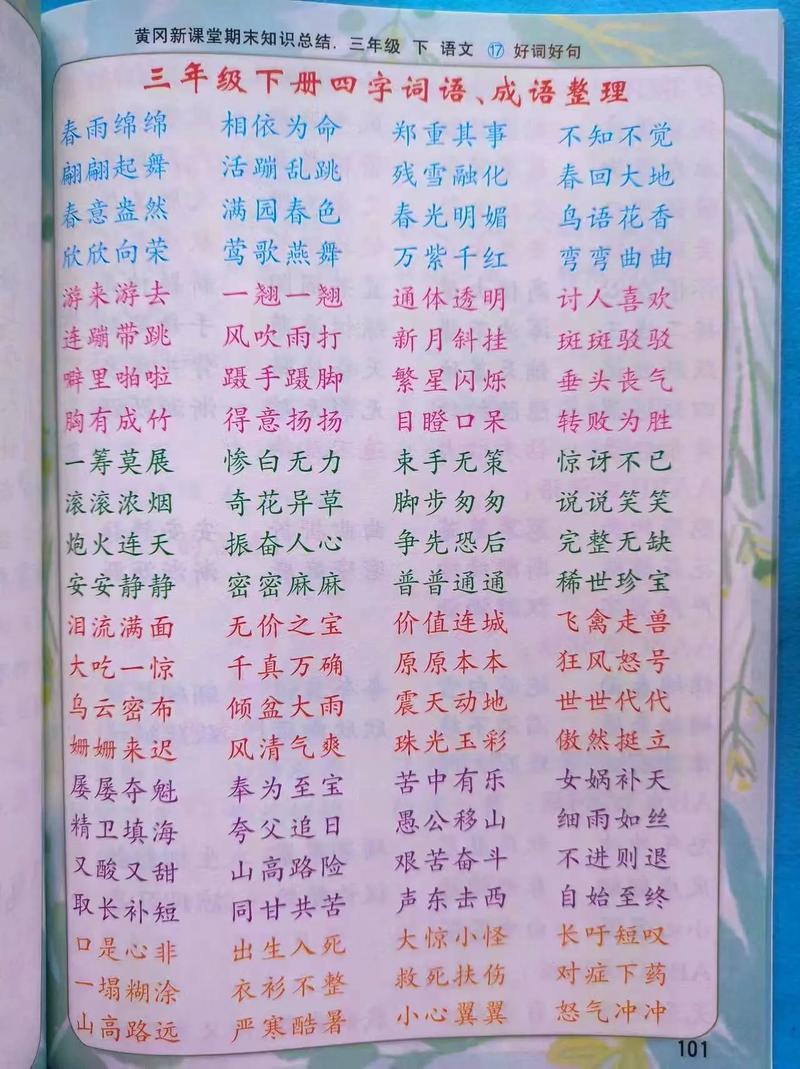 黄冈新课堂期末知识总结. 三年级 下 语文 ⑰ 好词好句
三年级下册四字词语、成语整理
春雨绵绵 相依为命 郑重其事 不知不觉
翩翩起舞 活蹦乱跳 残雪融化 春回大地
春意盎然 满园春色 春光明媚 鸟语花香
欣欣向荣 莺歌燕舞 万紫千红 弯弯曲曲
游来游去 一翘一翘 通体透明 讨人喜欢
连蹦带跳 风吹雨打 新月斜挂 斑斑驳驳
噼里啪啦 蹑手蹑脚 繁星闪烁 垂头丧气
胸有成竹 得意扬扬 目瞪口呆 转败为胜
一筹莫展 惨白无力 束手无策 惊讶不已
滚滚浓烟 奇花异草 脚步匆匆 说说笑笑
炮火连天 振奋人心 争先恐后 完整无缺
安安静静 密密麻麻 普普通通 稀世珍宝
泪流满面 无价之宝 价值连城 飞禽走兽
大吃一惊 千真万确 原原本本 狂风怒号
乌云密布 倾盆大雨 震天动地 世世代代
姗姗来迟 风清气爽 珠光玉彩 傲然挺立
屡屡夺魁 奉为至宝 苦中有乐 女娲补天
精卫填海 夸父追日 愚公移山 细雨如丝
又酸又甜 山高路险 艰苦奋斗 不进则退
取长补短 同甘共苦 声东击西 自始至终
口是心非 出生入死 大惊小怪 长吁短叹
一塌糊涂 衣衫不整 救死扶伤 对症下药
山高路远 严寒酷暑 小心翼翼 怒气冲冲
101